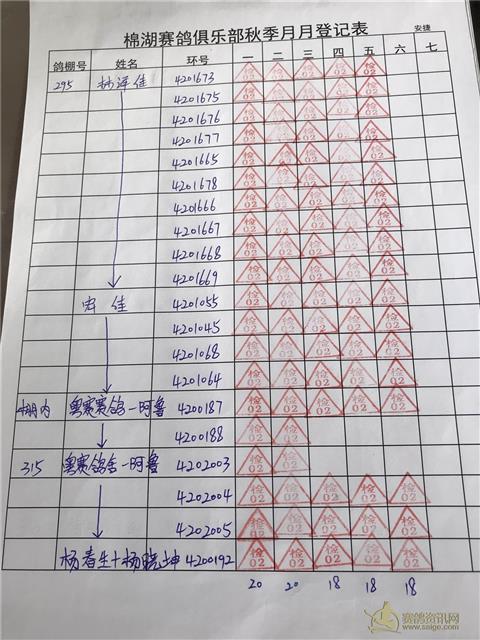 棉湖赛鸽俱乐部秋季月月登记表
安捷
鸽棚号 姓名 环号 一 二 三 四 五 六 七
295 林泽佳 4201673 检02 检02 检02 检02 检02
4201675 检02 检02 检02 检02 检02
4201676 检02 检02 检02 检02 检02
4201677 检02 检02 检02 检02 检02
4201665 检02 检02 检02 检02 检02
4201678 检02 检02 检02 检02 检02
4201666 检02 检02 检02 检02 检02
4201667 检02 检02 检02 检02 检02
4201668 检02 检02 检02 检02 检02
4201669 检02 检02 检02 检02 检02
佳 4201055 检02 检02 检02 检02 检02
4201045 检02 检02 检02 检02 检02
4201068 检02 检02 检02 检02 检02
4201064 检02 检02 检02 检02 检02
棚内 粤赛赛鸽一阿鲁 4200187 检02 检02 检02 检02 检02
4200188 检02 检02
315 粤赛鸽舍一阿鲁 4202003 检02 检02
4202004 检02 检02 检02 检02 检02
4202005 检02 检02 检02 检02 检02
杨春生+杨晓坤 4200192 检02 检02 检02 检02 检02
20 20 18 18 18
赛鸽资讯网
www.saige.com